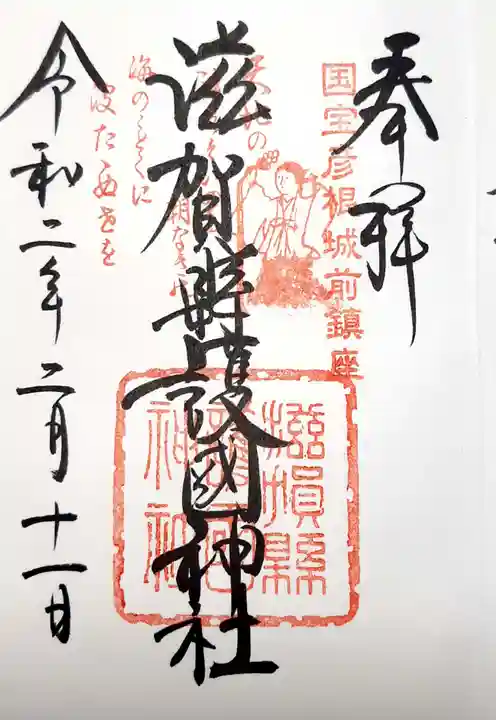 奉拝
国宝彦根城前鎮座
滋賀縣護國神社
滋賀縣
護國
神社
海のごとくに
波たゝぬ世を
令和二年二月十一日